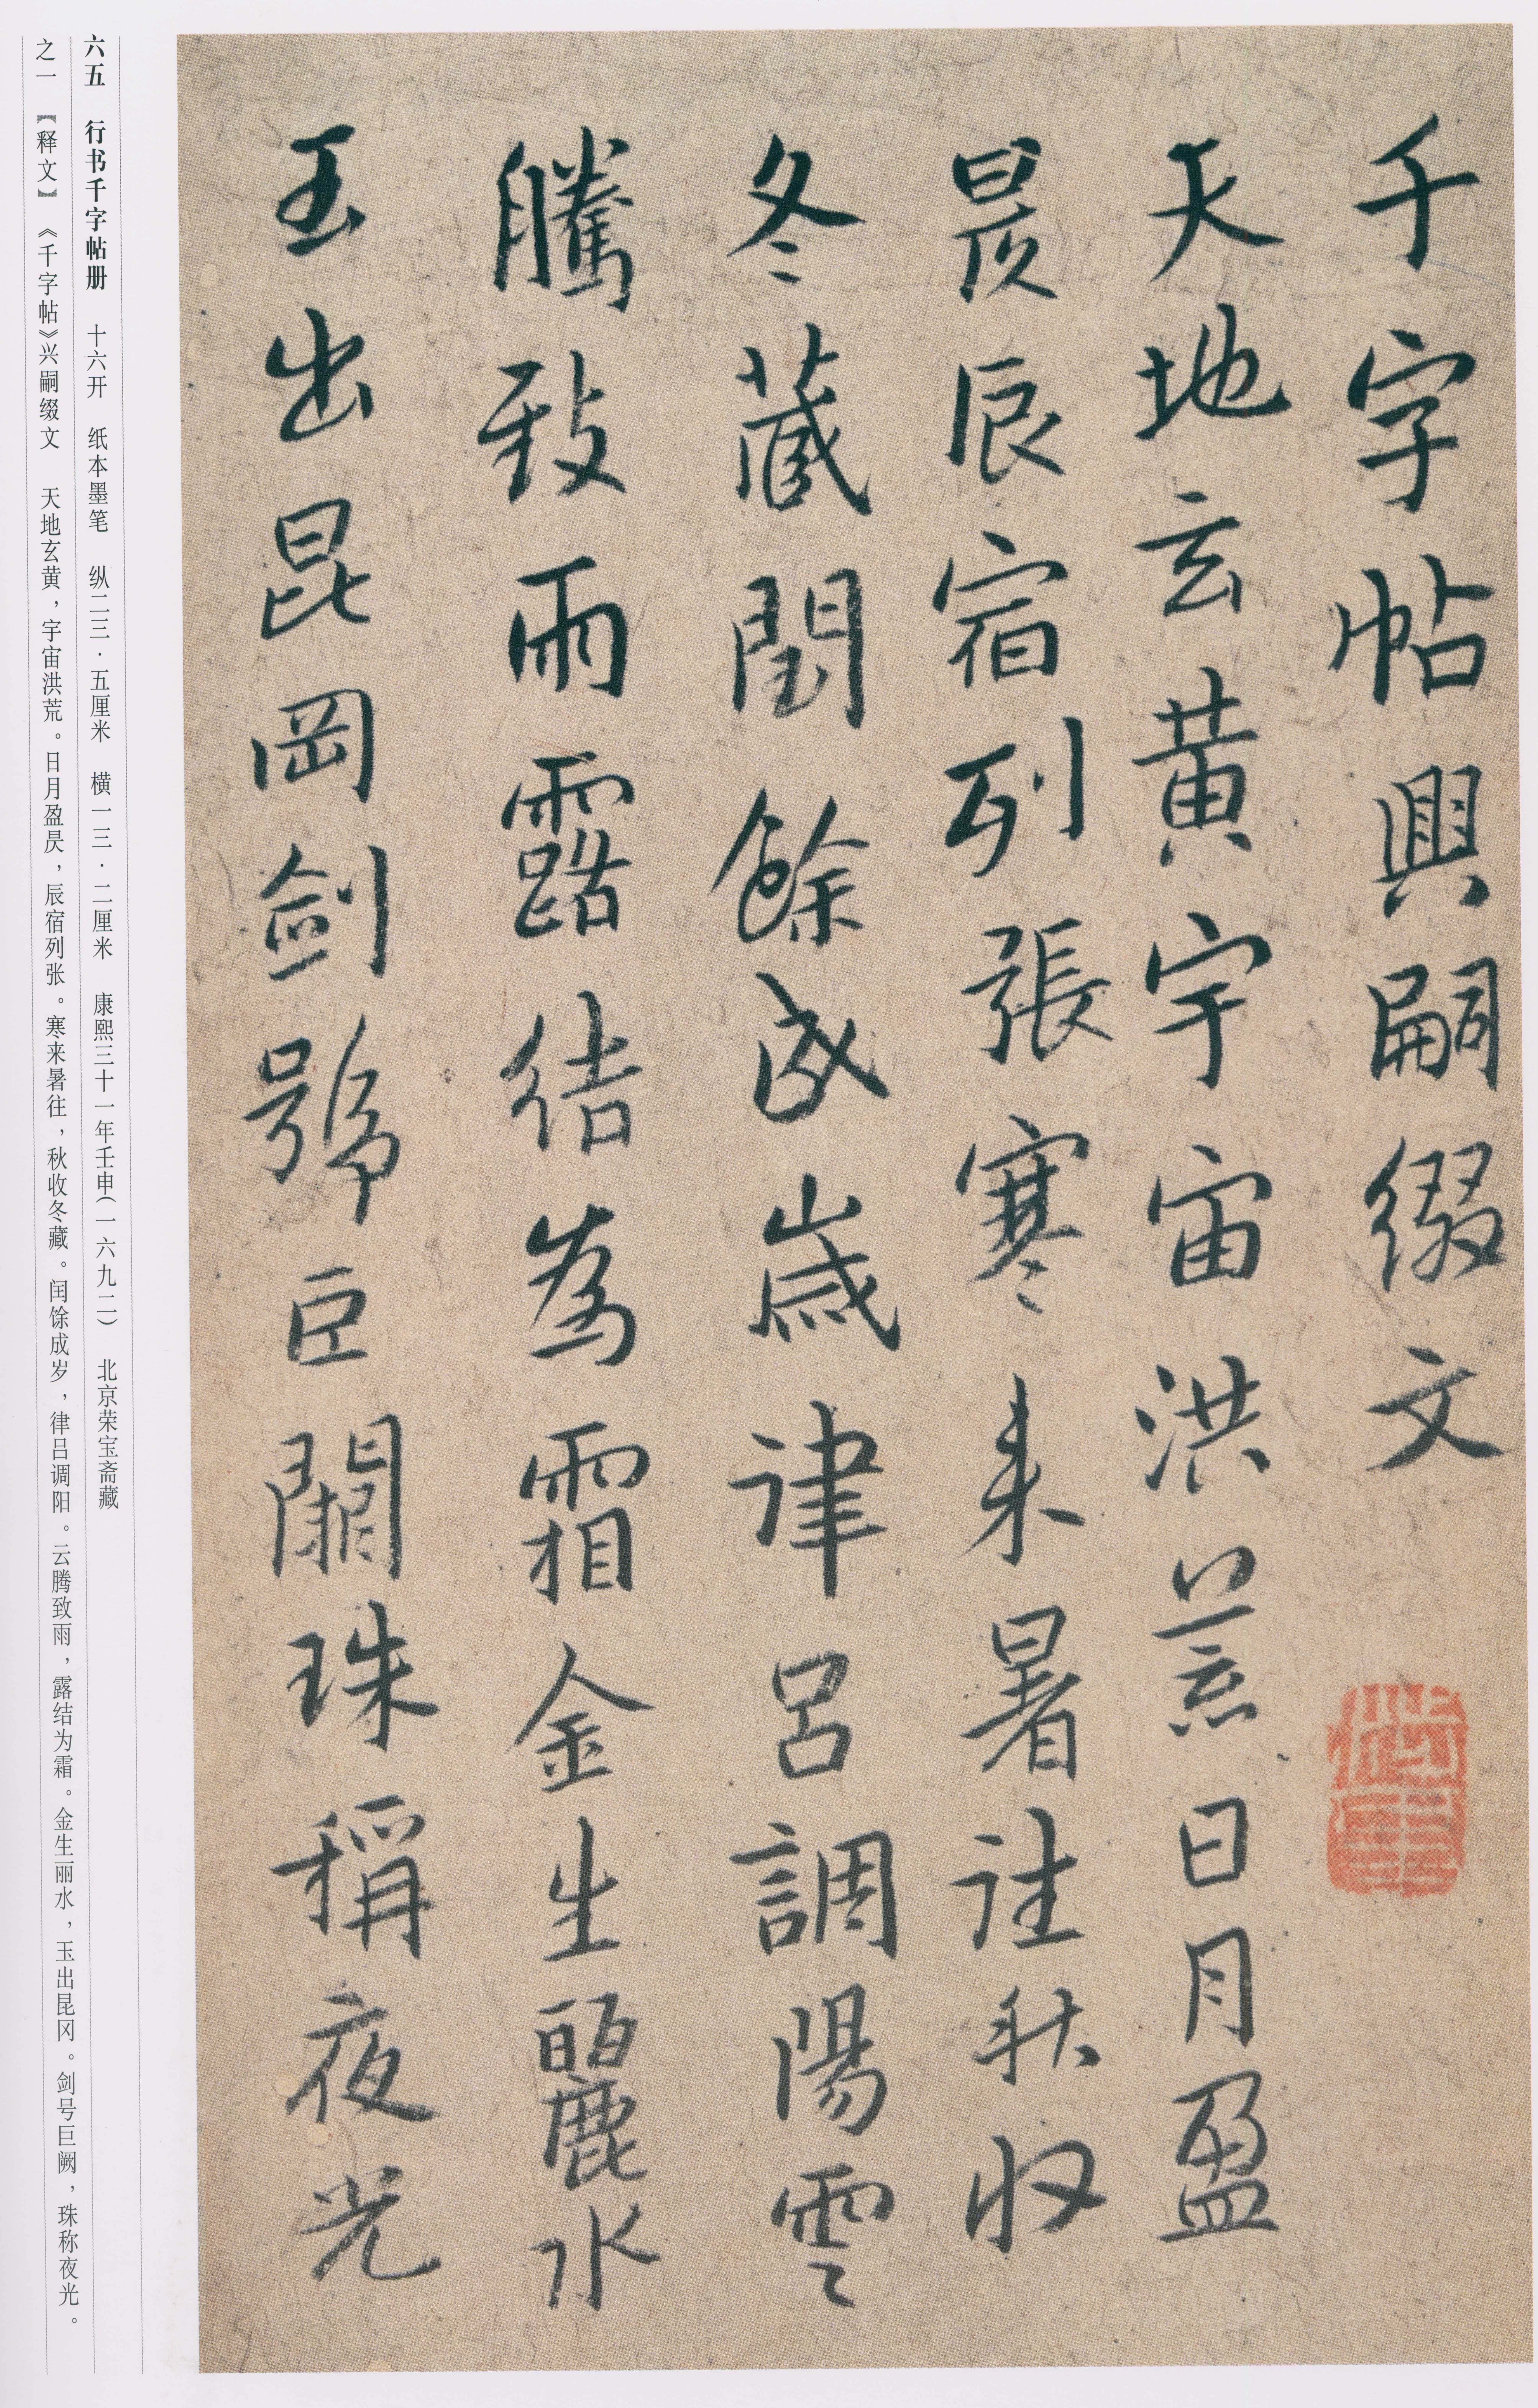 千字帖興嗣綴文
天地玄黄宇宙洪荒日月盈
昃辰宿列張寒来暑往秋收
冬蔵閏餘成歲律呂調陽雲
騰致雨露結為霜金生麗水
玉出昆岡剑號巨闕珠稱夜光
六五 行书千字帖册 十六开 纸本墨笔 纵二三·五厘米 横一三·二厘米 康熙三十一年壬申(一六九二) 北京荣宝斋藏
之一 【释文】《千字帖》兴嗣缀文 天地玄黄，宇宙洪荒。日月盈昃，辰宿列张。寒来暑往，秋收冬藏。闰馀成岁，律吕调阳。云腾致雨，露结为霜。金生丽水，玉出昆冈。剑号巨阙，珠称夜光。